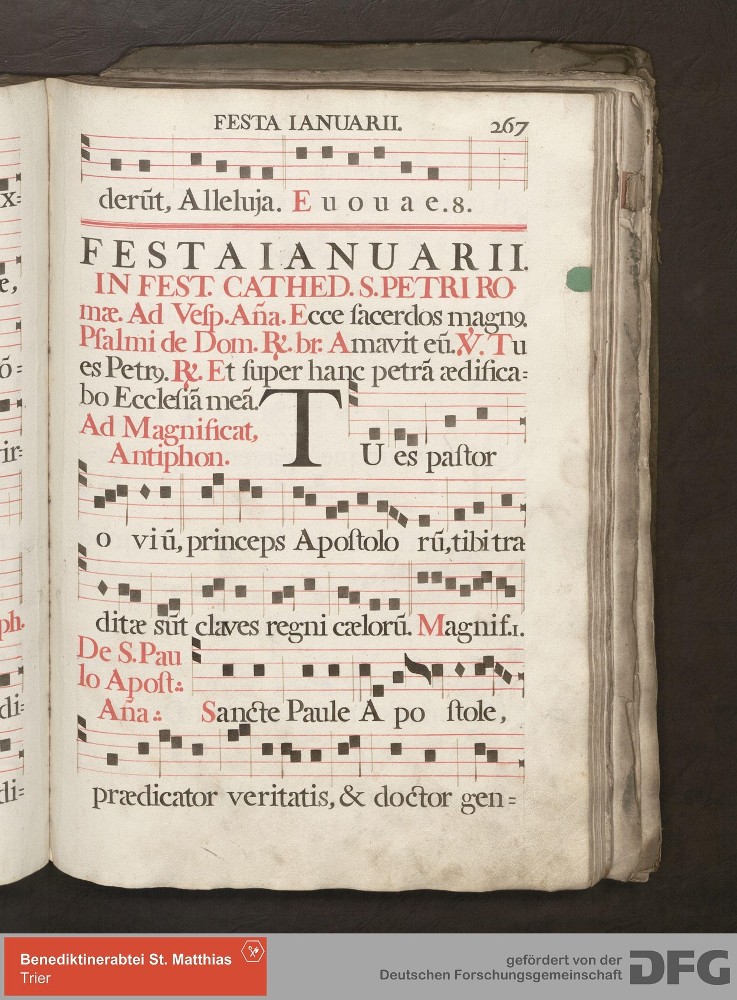 FESTA IANUARII. 267
derūt, Alleluja. E u o u a e. 8.
FESTA IANUARII.
IN FEST. CATHED. S. PETRI RO-
mæ. Ad Veſp. Aña. Ecce ſacerdos magnꝰ.
Pſalmi de Dom. ℟. br. Amavit eū. ℣. Tu
es Petrꝰ. ℟. Et ſuper hanc petrā ædifica=
bo Eccleſiā meā.
Ad Magnificat,
Antiphon.
TU es paſtor
o viū, princeps Apoſtolo rū, tibi tra
ditæ sūt claves regni cælorū. Magnif. 1.
De S. Pau
lo Apoſt.:
Aña.:
Sancte Paule A po ſtole,
prædicator veritatis, & doctor gen=
x=
e,
ō=
rir=
ph.
di=
di=
Benediktinerabtei St. Matthias
Trier
gefördert von der
Deutschen Forschungsgemeinschaft
DFG